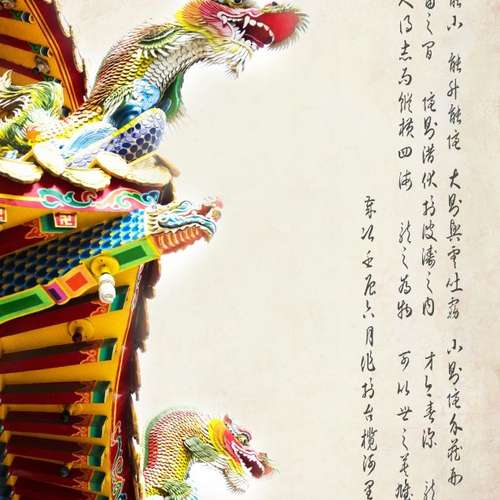 能小 能升能隱 大則興雲吐霧 小則隱介藏形
宙之間 隱則潛伏於波濤之內 方今春深 龍
人得志而縱橫四海 龍之為物 可比世之英雄
歲次壬辰六月作於台